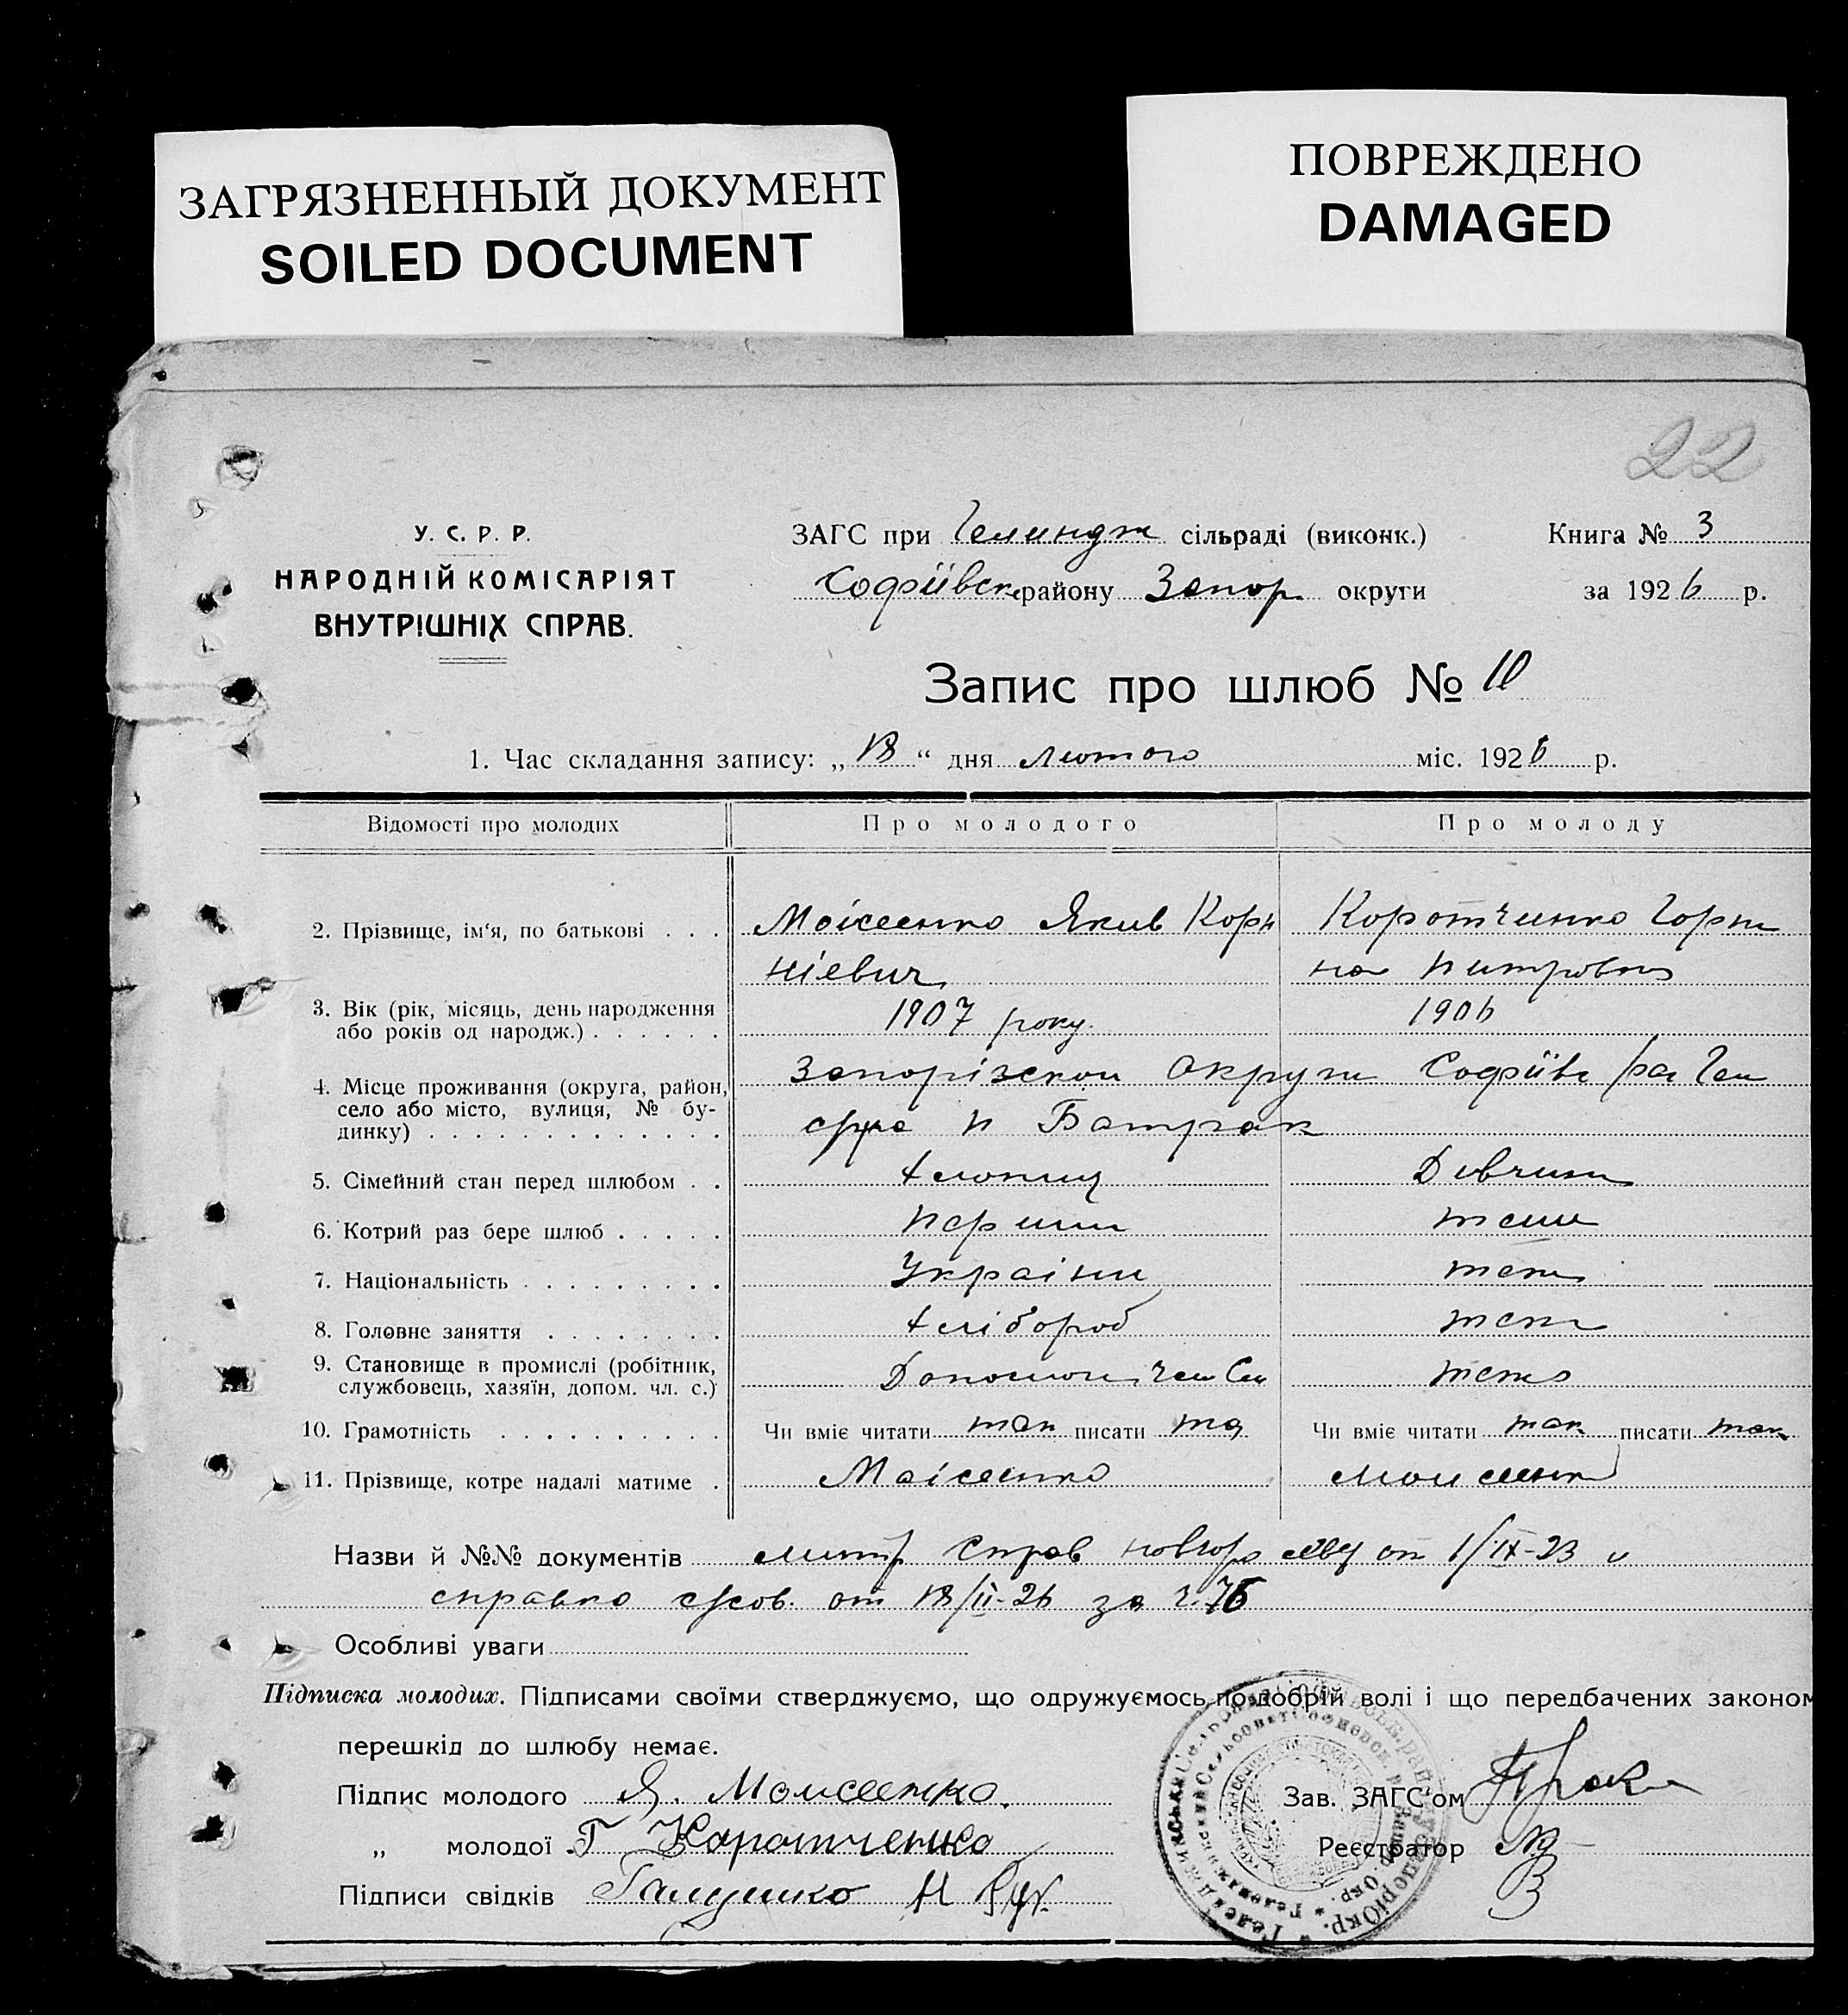 ЗАГРЯЗНЕННЫЙ ДОКУМЕНТ
SOILED DOCUMENT
ПОВРЕЖДЕНО
DAMAGED
22
У. С. Р. Р.
НАРОДНІЙ КОМІСАРІЯТ
ВНУТРІШНІХ СПРАВ.
ЗАГС при сільраді (виконк.) Книга № 3
Софіївск району Запор. округи за 1926 р.
Запис про шлюб № 10
1. Час складання запису: „18“ дня лютого міс. 1926 р.
Відомості про молодих Про молодого Про молоду
2. Прізвище, ім'я, по батькові . . . Моісеенко Якив Корн Коротченко Горпи
ніевич на Питровна
3. Вік (рік, місяць, день народження 1907 року. 1906
або років од народж.) . . . . . .
4. Місце проживання (округа, район, Запорізскои Округи Софіївс
село або місто, вулиця, № бу- п Батрак
динку) . . . . . . . . . . . . .
5. Сімейний стан перед шлюбом . . Дивчина
6. Котрий раз бере шлюб . . . . .
7. Національність . . . . . . . . . Украіни
8. Головне заняття . . . . . . . . хлібороб
9. Становище в промислі (робітник,
службовець, хазяїн, допом. чл. с.)
10. Грамотність . . . . . . . . . . Чи вміє читати так писати та Чи вміє читати так писати так
11. Прізвище, котре надалі матиме . Моісеенко Моисеенко
Назви й №№ документів Справ от 1/IX-23 и
справка от 18/II-26 за 76
Особливі уваги
Підписка молодих. Підписами своїми стверджуємо, що одружуємось по добрій волі і що передбачених законом
перешкід до шлюбу немає.
Підпис молодого Я. Моисеенко. Зав. ЗАГС'ом
„ молодої Г Коротченко Реєстратор
Підписи свідків Галушко